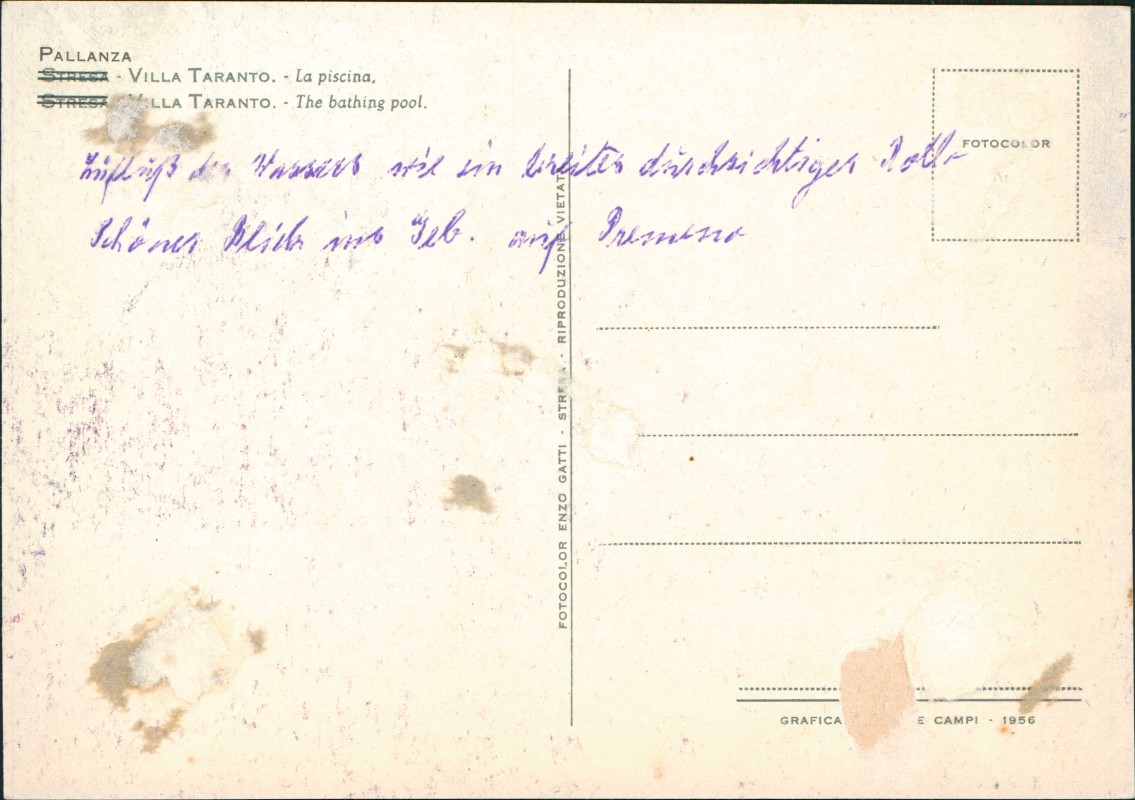 PALLANZA
STRESA - VILLA TARANTO. - La piscina.
STRESA - VILLA TARANTO. - The bathing pool.
FOTOCOLOR
des Wassers wie ein breiter durchsichtiger
Schöner Blick ins Geb. auf Premeno
FOTOCOLOR ENZO GATTI - STRESA - RIPRODUZIONE VIETAT
GRAFICA E CAMPI - 1956